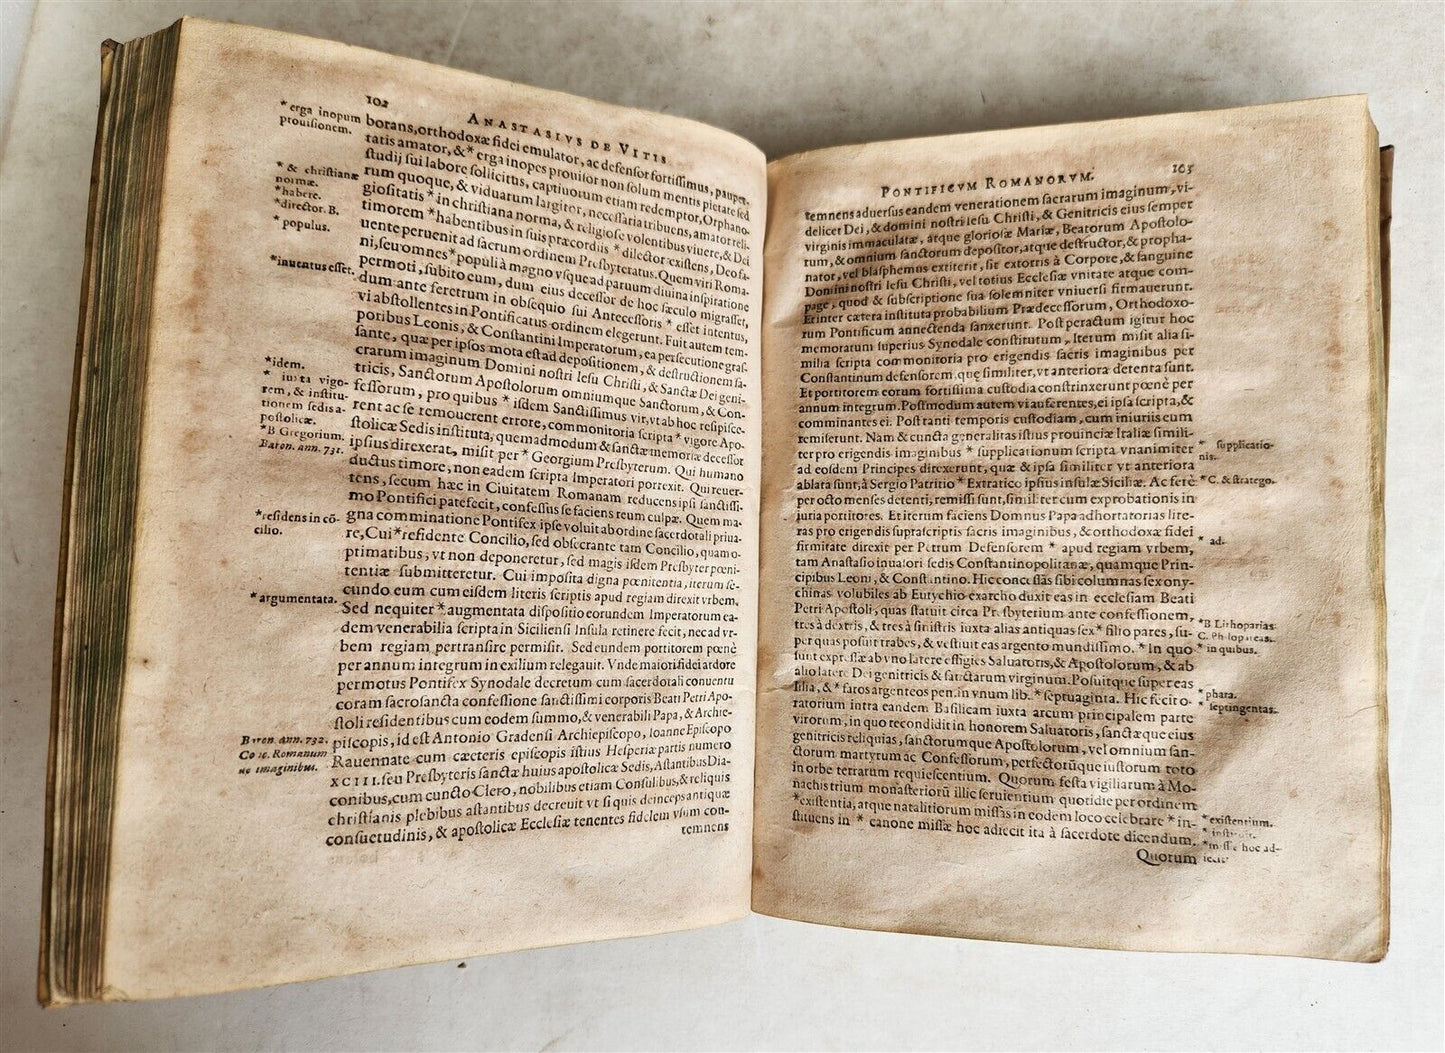 102
ANASTASIVS DE VITIS
borans, orthodoxæ fidei emulator, ac defensor fortissimus, pauper-
tatis amator, &* erga inopes prouisor non solum mentis pietate sed
studij sui labore sollicitus, captiuorum etiam redemptor, Orphano-
rum quoque, & viduarum largitor, necessaria tribuens, amator reli-
giositatis * in christiana norma, & religiose volentibus viuere, & Dei
timorem *habentibus in suis præcordiis * dilector existens, Deo fa-
uente peruenit ad sacrum ordinem Presbyteratus. Quem viri Roma-
ni, seu omnes *populi à magno vsque ad paruum diuina inspiratione
permoti, subito cum, dum eius decessor de hoc sæculo migrasset,
dum ante feretrum in obsequio sui Antecessoris * esset intentus,
vi abstollentes in Pontificatus ordinem elegerunt. Fuit autem tem-
poribus Leonis, & Constantini Imperatorum, ea persecutione gras-
sante, quæ per ipsos mota est ad depositionem, & destructionem sa-
crarum imaginum Domini nostri Iesu Christi, & Sanctæ Dei geni-
tricis, Sanctorum Apostolorum omniumque Sanctorum, & Con-
fessorum, pro quibus * isdem Sanctissimus vir, vt ab hoc resipisce-
rent ac se remouerent errore, commonitoria scripta * vigore Apo-
stolicæ Sedis instituta, quemadmodum & sanctæ memoriæ decessor
ipsius direxerat, misit per * Georgium Presbyterum. Qui humano
ductus timore, non eadem scripta Imperatori porrexit. Qui reuer-
tens, secum hæc in Ciuitatem Romanam reducens ipsi sanctissi-
mo Pontifici patefecit, confessus se faciens reum culpæ. Quem ma-
gna comminatione Pontifex ipse voluit ab ordine sacerdotali priua-
re, Cui *residente Concilio, sed obsecrante tam Concilio, quam o-
primatibus, vt non deponeretur, sed magis isdem Presbyter pœni-
tentiæ submitteretur. Cui imposita digna pœnitentia, iterum se-
cundo eum cum eisdem literis scriptis apud regiam direxit vrbem.
Sed nequiter *augmentata dispositio eorundem Imperatorum ea-
dem venerabilia scripta in Siciliensi Insula retinere fecit, nec ad vr-
bem regiam pertransire permisit. Sed eundem portitorem pœnè
per annum integrum in exilium relegauit. Vnde maiori fidei ardore
permotus Pontifex Synodale decretum cum sacerdotali conuentu
coram sacrosancta confessione sanctissimi corporis Beati Petri Apo-
stoli residentibus cum eodem summo, & venerabili Papa, & Archie-
piscopis, id est Antonio Gradensi Archiepiscopo, Ioanne Episcopo
Rauennate cum cæteris episcopis istius Hesperiæ partis numero
XCIII. seu Presbyteris sanctæ huius apostolicæ Sedis, Astantibus Dia-
conibus, cum cuncto Clero, nobilibus etiam Consulibus, & reliquis
christianis plebibus astantibus decreuit vt si quis deinceps antiquæ
consuetudinis, & apostolicæ Ecclesiæ tenentes fidelem vsum con-
temnens
* erga inopum
prouisionem.
* & christianæ
normæ.
*habere.
*director. B.
* populus.
*inuentus esset.
*idem.
* iuxta vigo-
rem, & institu-
tionem sedis a-
postolicæ.
*B Gregorium.
Baron. ann. 731.
*residens in cō-
cilio.
* argumentata.
Baron. ann. 732.
Conc. Romanum
de imaginibus.
PONTIFICVM ROMANORVM.
103
temnens aduersus eandem venerationem sacrarum imaginum, vi-
delicet Dei, & domini nostri Iesu Christi, & Genitricis eius semper
virginis immaculatæ, atque gloriosæ Mariæ, Beatorum Apostolo-
rum, & omnium sanctorum depositor, atque destructor, & propha-
nator, vel blasphemus extiterit, sit extorris à Corpore, & sanguine
Domini nostri Iesu Christi, vel totius Ecclesiæ vnitate atque com-
page, quod & subscriptione sua solemniter vniuersi firmauerunt.
Et inter cætera instituta probabilium Prædecessorum, Orthodoxo-
rum Pontificum annectenda sanxerunt. Post peractum igitur hoc
memoratum superius Synodale constitutum, Iterum misit alia si-
milia scripta commonitoria pro erigendis sacris imaginibus per
Constantinum defensorem, quę similiter, vt anteriora detenta sunt.
Et portitorem eorum fortissima custodia constrinxerunt pœnè per
annum integrum. Postmodum autem vi auferentes, ei ipsa scripta, &
comminantes ei. Post tanti temporis custodiam, cum iniuriis eum
remiserunt. Nam & cuncta generalitas istius prouinciæ Italiæ simili-
ter pro erigendis imaginibus * supplicationum scripta vnanimiter
ad eosdem Principes direxerunt, quæ & ipsa similiter vt anteriora
ablata sunt, à Sergio Patritio * Extratico ipsius insulæ Siciliæ. Ac ferè
per octo menses detenti, remissi sunt, similiter cum exprobationis in-
iuria portitores. Et iterum faciens Domnus Papa adhortatorias lite-
ras pro erigendis suprascriptis sacris imaginibus, & orthodoxæ fidei
firmitate direxit per Petrum Defensorem * apud regiam vrbem,
tam Anastasio inuasori sedis Constantinopolitanæ, quamque Prin-
cipibus Leoni, & Constantino. Hic concessas sibi columnas sex ony-
chinas volubiles ab Eutychio exarcho duxit eas in ecclesiam Beati
Petri Apostoli, quas statuit circa Presbyterium ante confessionem,
tres à dextris, & tres à sinistris iuxta alias antiquas sex * filio pares, su-
per quas posuit trabes, & vestiuit eas argento mundissimo. * In quo
sunt expressæ ab vno latere effigies Saluatoris, & Apostolorum, & ab
alio latere Dei genitricis & sanctarum virginum. Posuitque super eas
lilia, & * faros argenteos pen. in vnum lib. * septuaginta. Hic fecit o-
ratorium intra eandem Basilicam iuxta arcum principalem parte
virorum, in quo recondidit in honorem Saluatoris, sanctæque eius
genitricis reliquias, sanctorumque Apostolorum, vel omnium san-
ctorum martyrum ac Confessorum, perfectorũque iustorum toto
in orbe terrarum requiescentium. Quorum festa vigiliarum à Mo-
nachis trium monasteriorũ illic seruientium quotidie per ordinem
*existentia, atque natalitiorum missas in eodem loco celebrate * in-
stituens in * canone missæ hoc adiecit ita à sacerdote dicendum.
Quorum
* supplicatio-
nis.
*C. & stratego.
* ad.
*B Lithoparias.
C. Philopareas.
* in quibus.
* phara.
* septingentas.
*existentium.
* instituit.
*missæ hoc ad-
iecit